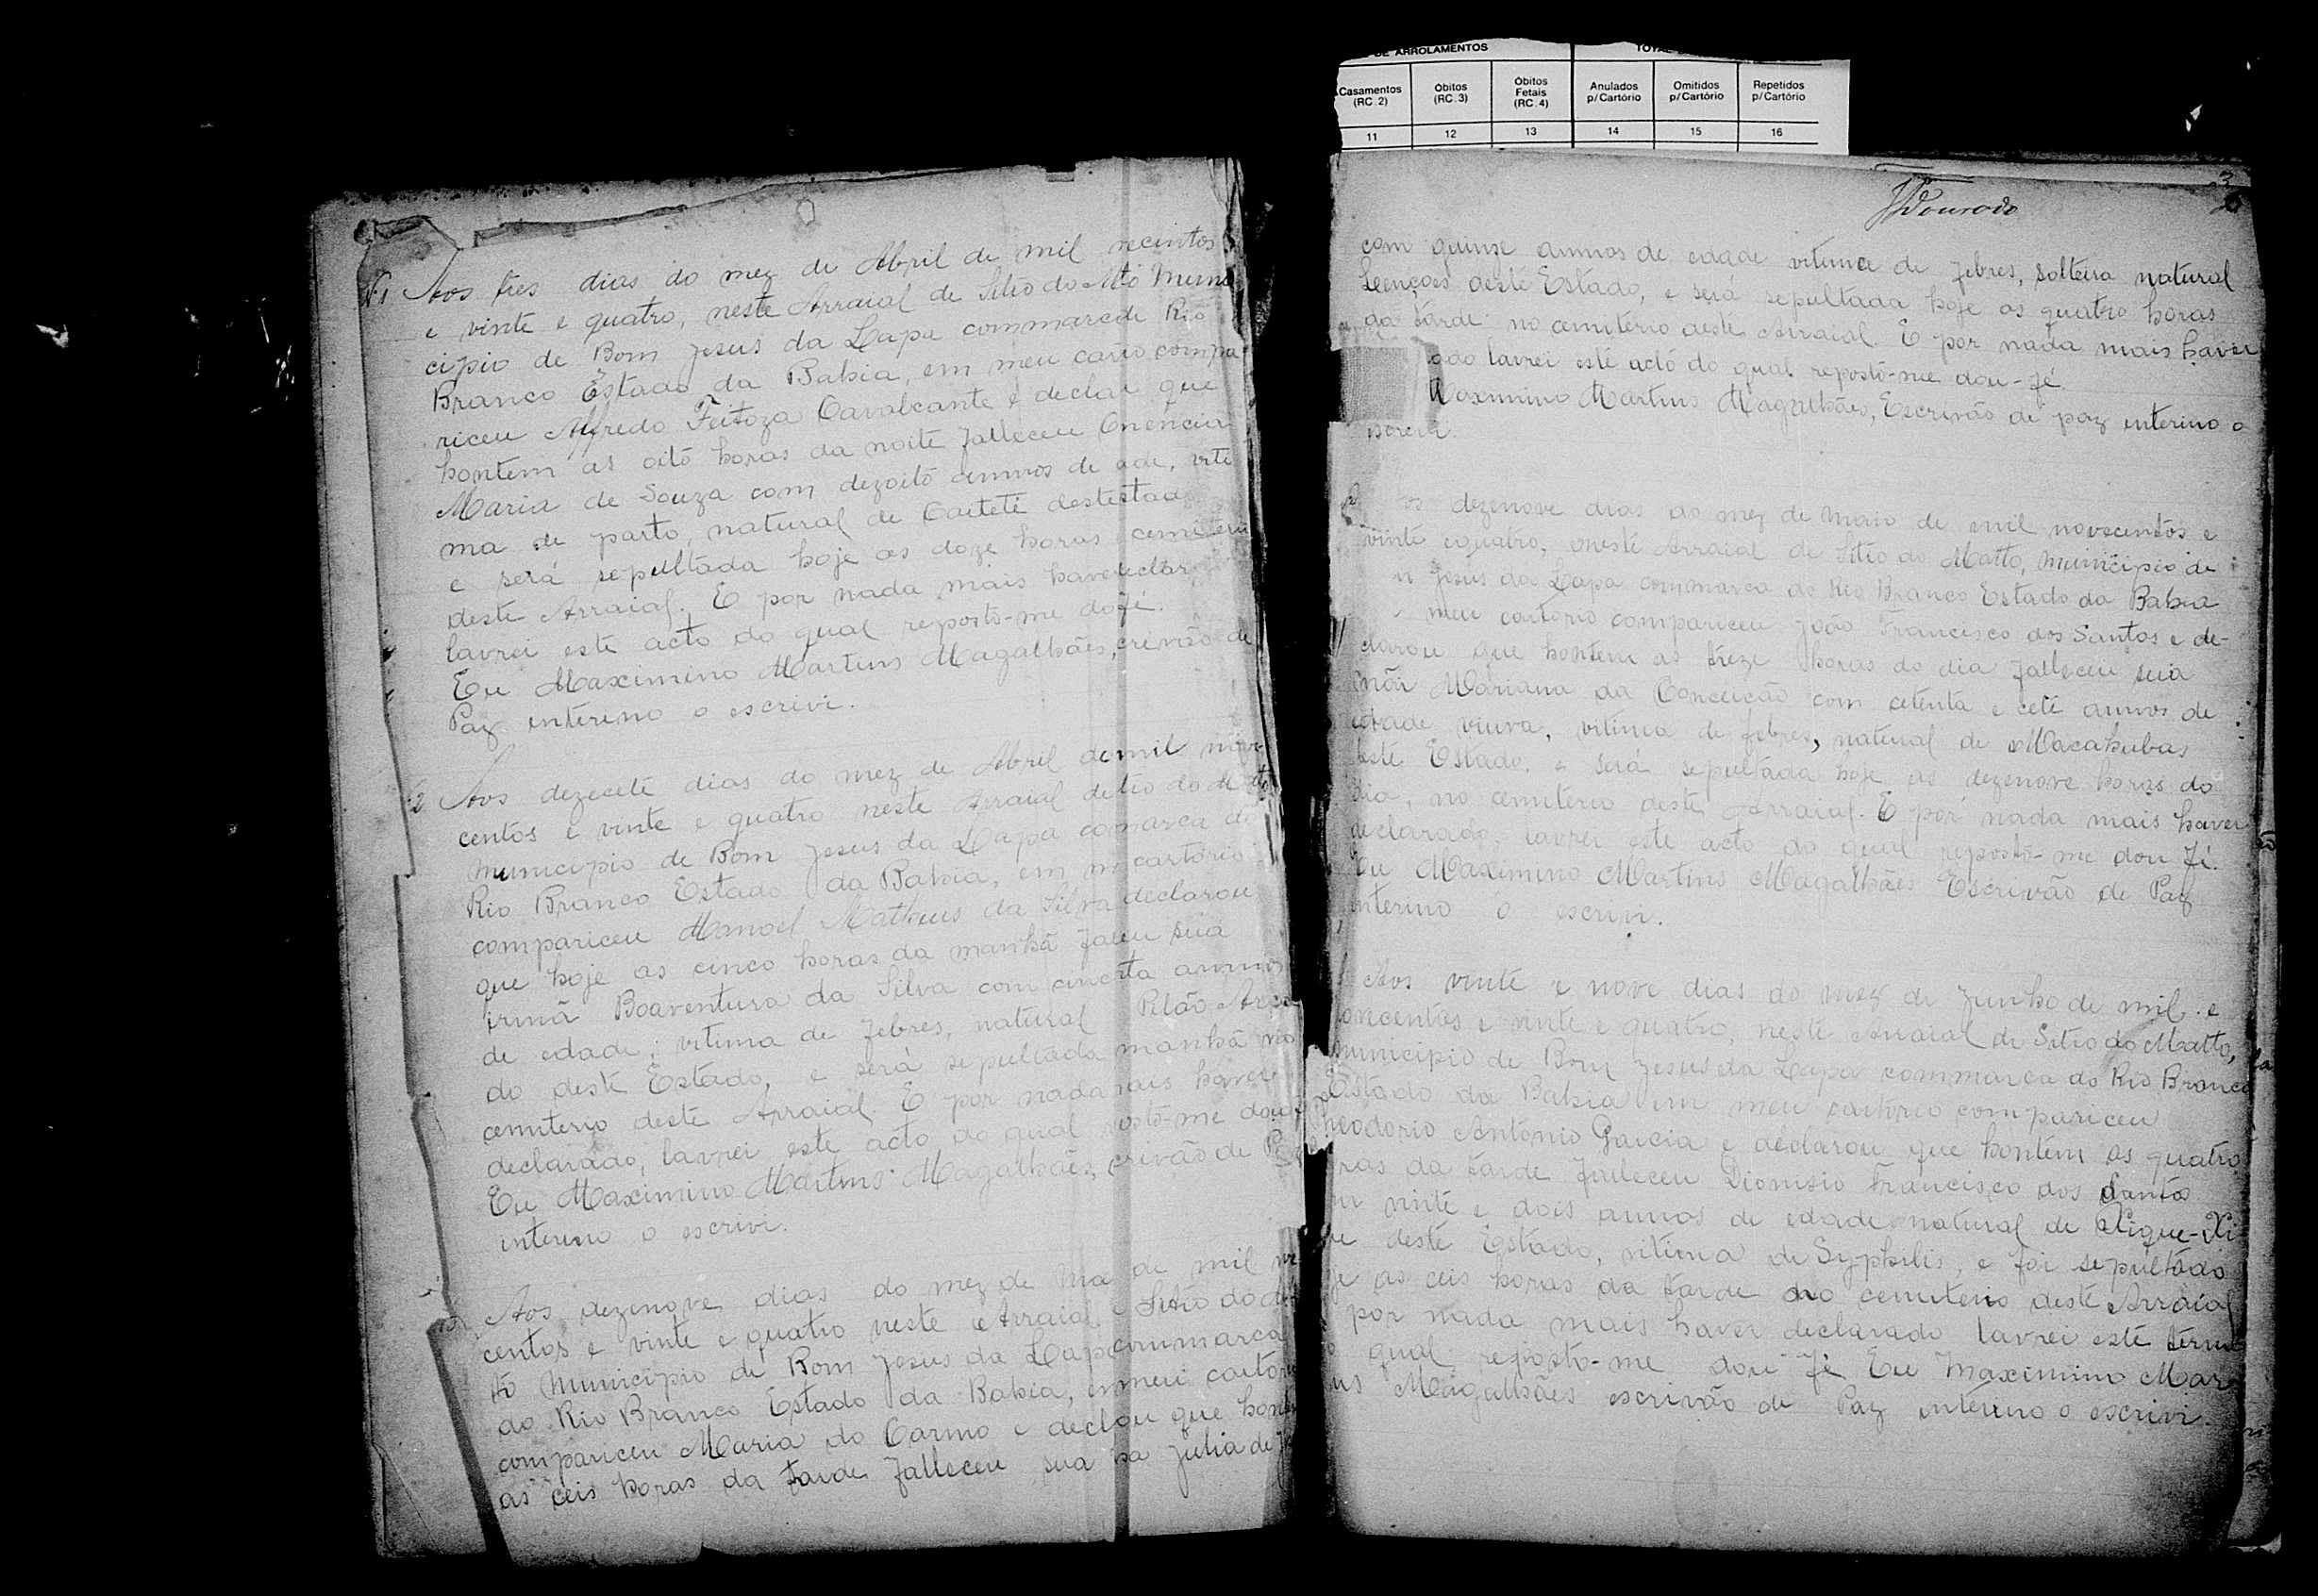 DE ARROLAMENTOS
Casamentos (RC.2) Óbitos (RC.3) Óbitos Fetais (RC.4) Anulados p/Cartório Omitidos p/Cartório Repetidos p/Cartório
11 12 13 14 15 16
Nº1 Aos tres dias do mez de Abril de mil necintos
e vinte e quatro, neste Arraial de Sitio do Mto Muni
cipio de Bom Jesus da Lapa commarca de Rio
Branco Estado da Bahia, em meu carío compa
riceu Alfredo Feitoza Cavalcante e declar que
hontem as oito horas da noite falleceu
Maria de Souza com dezoito annos de ade, viti
ma de parto, natural de Caiteté destestad
e será sepultada hoje as doze horas cemiteri
deste Arraial. E por nada mais haver eclar
lavrei este acto do qual reposto-me do fé.
Eu Maximino Martins Magalhães, crivão de
Paz interino o escrivi.
2 Aos dezecete dias do mez de Abril de mil nove
centos e vinte e quatro neste Arraial de tio do Matto
Municipio de Bom Jesus da Lapa comarca do
Rio Branco Estado da Bahia, em m cartorio
compariceu Manoel Matheus da Silva declarou
que hoje as cinco horas da manhã faleu sua
irmã Boaventura da Silva com cincota annos
de edade, vitima de febres, natural Pilão Arca
do deste Estado, e será sepultada manhã no
cemiterio deste Arraial. E por nada mais haver
declarado, lavrei este acto do qual osto-me dou f
Eu Maximino Martins Magalhães, crivão de P
interino o escrivi.
Aos dezenove dias do mez de Ma de mil
centos e vinte e quatro neste Arraial Sitio do
to Municipio de Bom Jesus da Lapa commarca
do Rio Branco Estado da Bahia, em meu cartor
compariceu Maria do Carmo e declou que hon
as ceis horas da tarde falleceu sua ha Julia de
3
Dourado
com quinze annos de edade vitima de febres, solteira natural
Lençoes deste Estado, e será sepultada hoje as quatro horas
da tarde no cemiterio deste Arraial. E por nada mais haver
ado lavrei este acto do qual reposto-me dou-fé
Maximino Martins Magalhães, Escrivão de paz interino o
escrevi.
os dezenove dias do mez de Maio de mil novecentos e
vinte e quatro, neste Arraial de Sitio do Matto, Municipio de
Jesus da Lapa commarca do Rio Branco Estado da Bahia
meu cartorio compariceu João Francisco dos Santos e de-
clarou que hontem as treze horas do dia falleceu sua
mãi Mariana da Conceição com cetenta e cete annos de
edade viuva, vitima de febres, natural de Macahubas
deste Estado, e será sepultada hoje as dezenove horas do
dia, no cemiterio deste Arraial. E por nada mais haver
declarado, lavrei este acto do qual reposto-me dou fé.
Eu Maximino Martins Magalhães Escrivão de Paz
interino o escrivi.
Aos vinte e nove dias do mez de Junho de mil e
novecentos e vinte e quatro, neste Arraial de Sitio do Matto,
municipio de Bom Jesus da Lapa commarca do Rio Branco
Estado da Bahia em meu cartorio compariceu
Theodorio Antonio Garcia e declarou que hontem as quatro
oras da tarde falleceu Dionizio Francisco dos Santos
m vinte e dois annos de edade natural de Xique-Xi
ue deste Estado, vitima de Syphilis, e foi sepultado
je as ceis horas da tarde no cemiterio deste Arraial
por nada mais haver declarado lavrei este termo
qual reposto-me dou fé Eu Maximino Mar
ins Magalhães escrivão de Paz interino o escrivi.